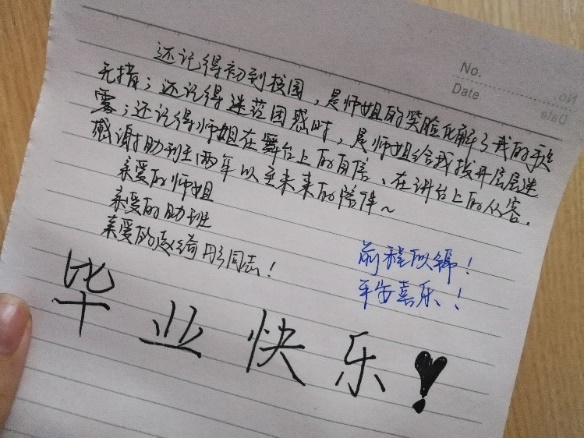 No.
Date
还记得初到校园，是师姐的笑脸化解了我的手足
无措；还记得迷茫困惑时，是师姐给我拨开层层迷
雾；还记得师姐在舞台上的自信、在讲台上的从容。
感谢助班两年以来的陪伴～
亲爱的师姐
亲爱的助班
亲爱的同志！
前程似锦！
平安喜乐！
毕业快乐！